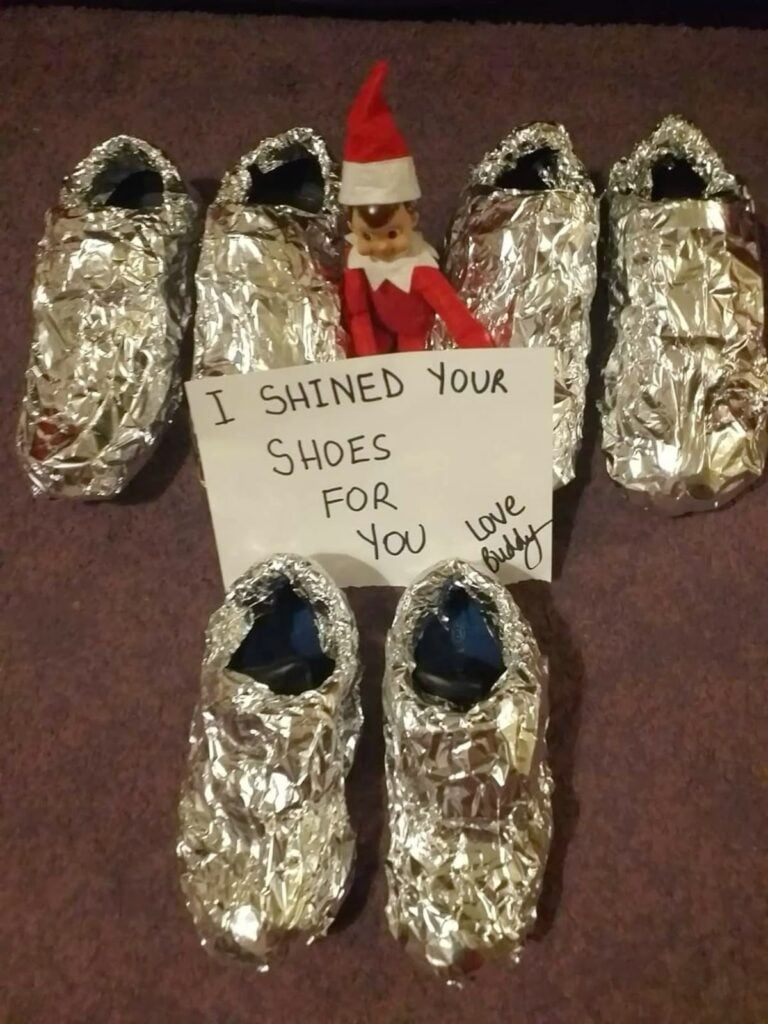 I SHINED YOUR
SHOES
FOR
YOU
LOVE
Buddy